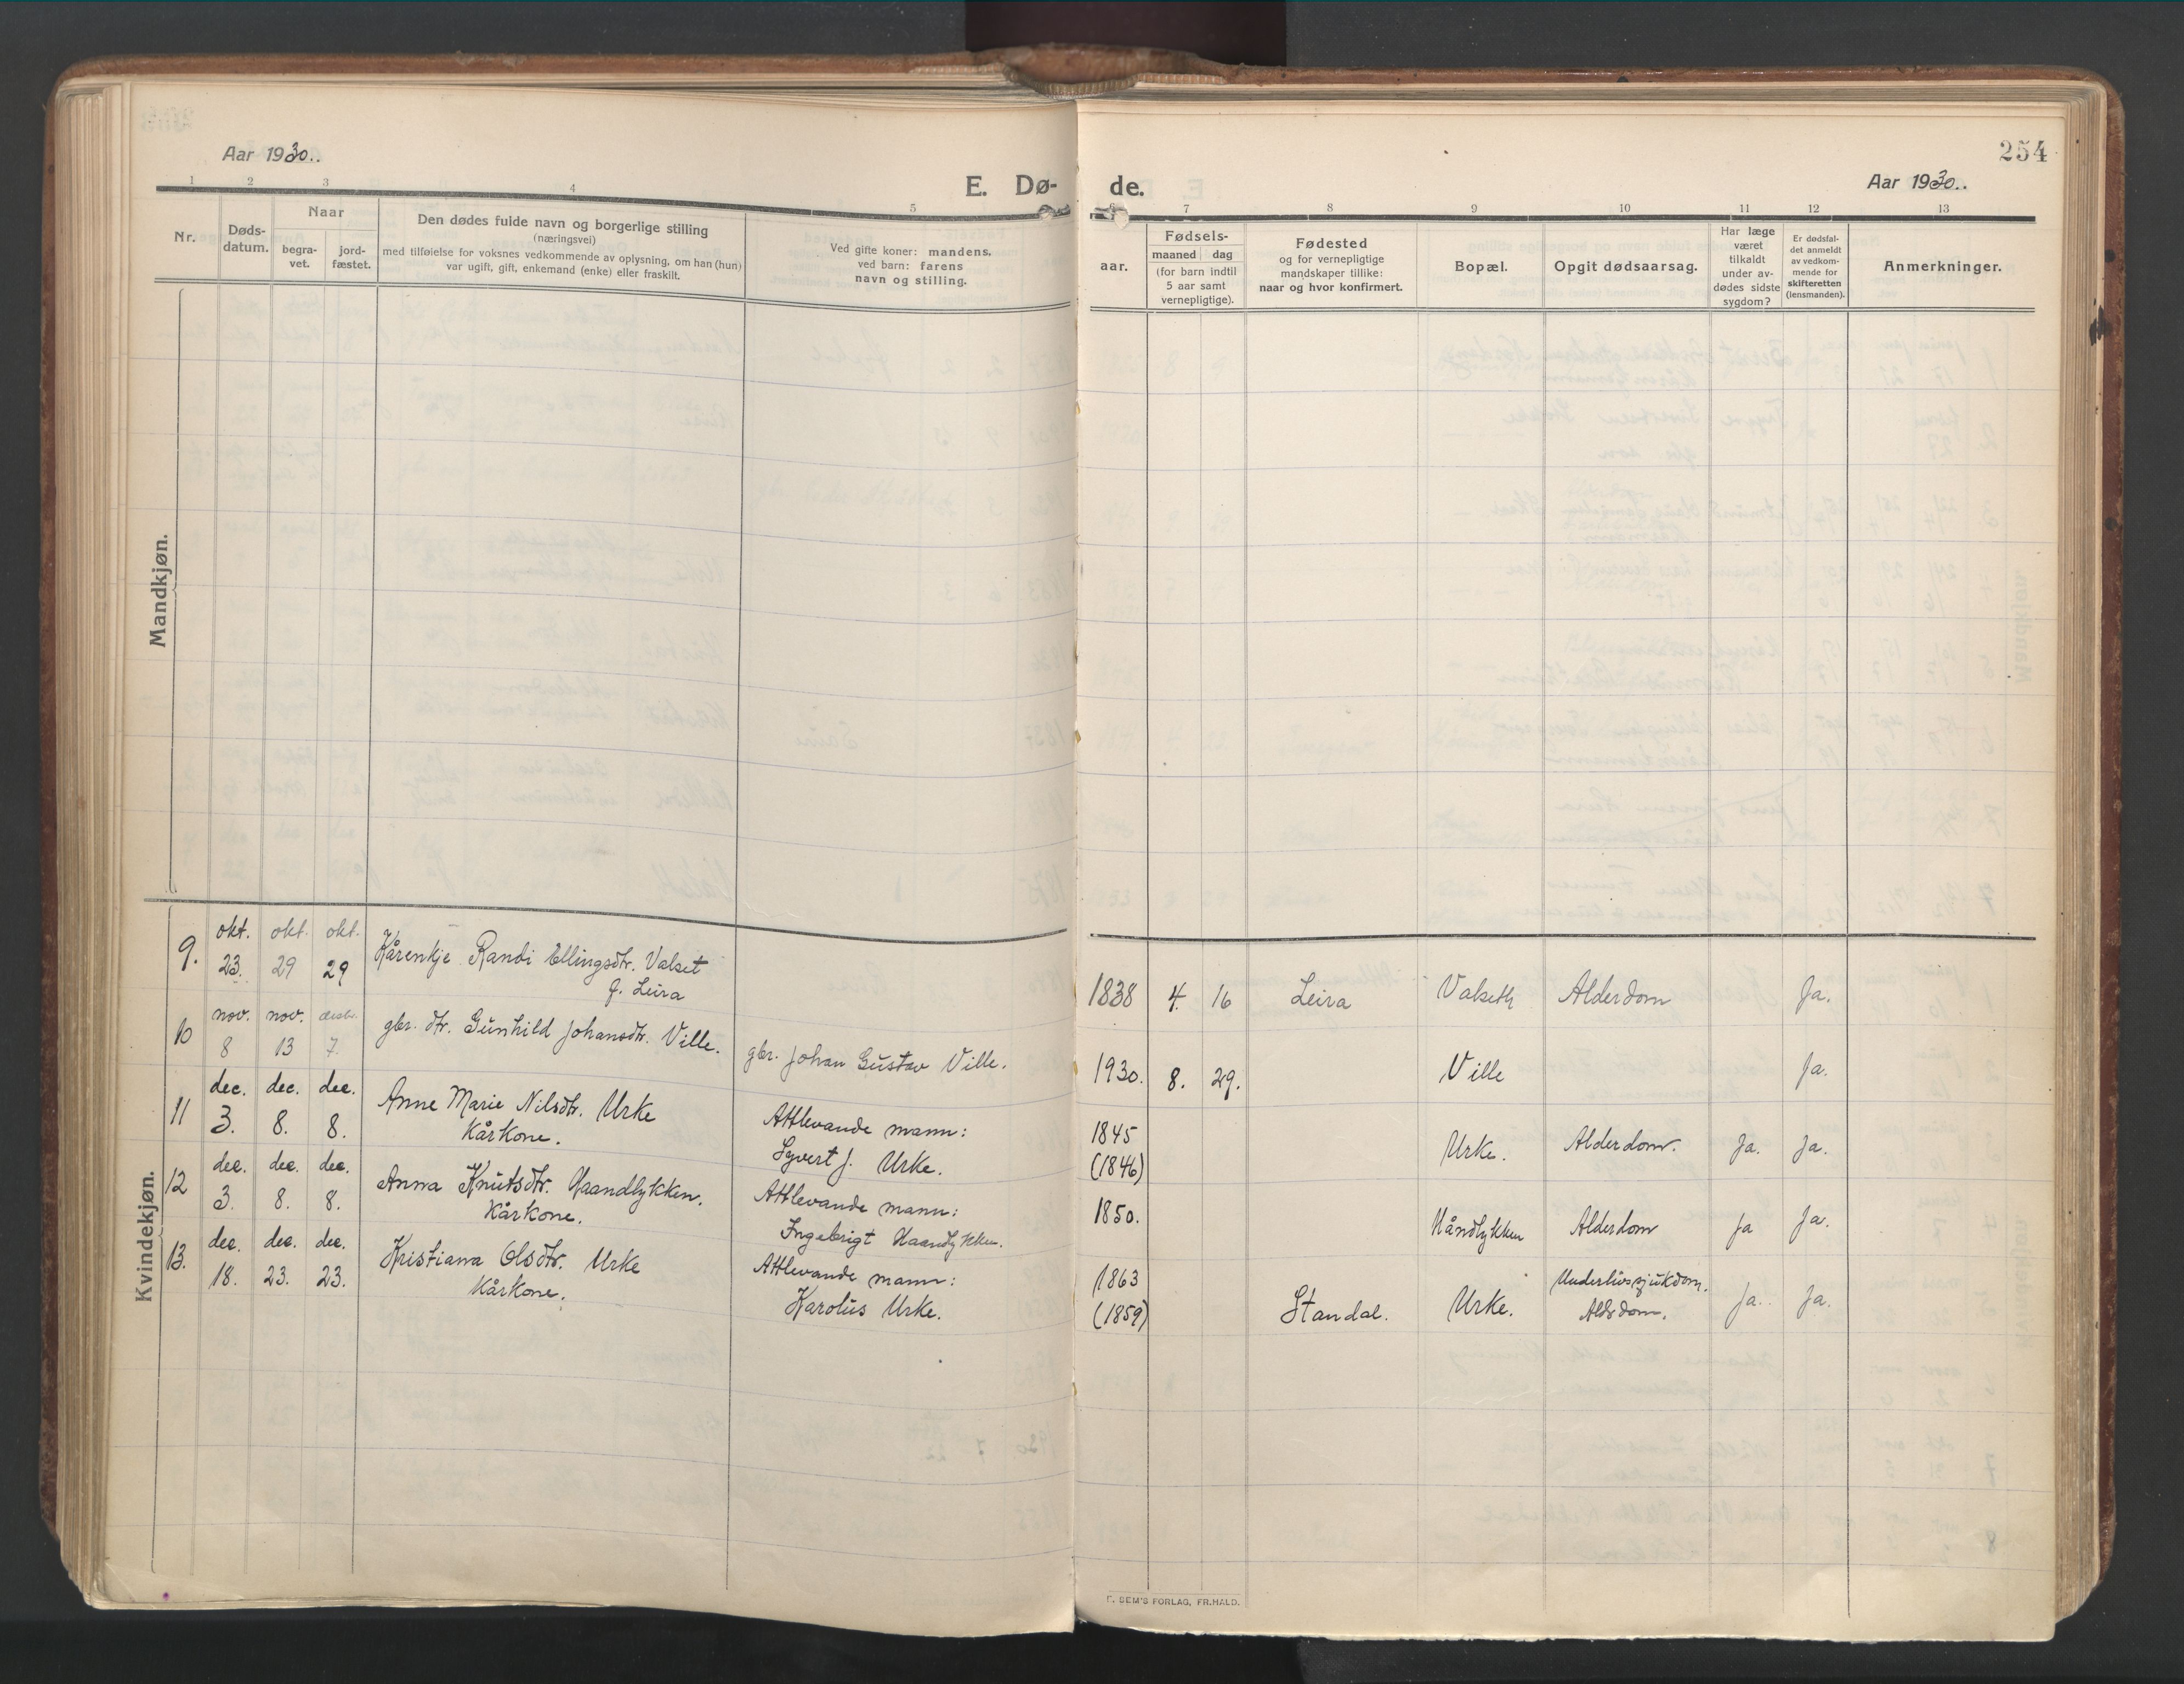 Aar 1930.
E. Dø-
1 2 3 4 5
Nr.
Døds-
datum.
Naar
begra-
vet.
jord-
fæstet.
Den dødes fulde navn og borgerlige stilling
(næringsvei)
med tilføielse for voksnes vedkommende av oplysning, om han (hun)
var ugift, gift, enkemand (enke) eller fraskilt.
Ved gifte koner: mandens,
ved barn: farens
navn og stilling.
Mandkjøn.
Kvindekjøn.
okt. okt. okt.
9. 23. 29 29 Kårenkje Randi Ellingsdtr. Valset
f. Leira
nov. nov. desbr.
10 8 13 7. gbr. dtr. Gunhild Johansdtr. Ville. gbr. Johan Gustav Ville.
dec. dec. dec.
11 3. 8. 8. Anne Marie Nilsdtr. Urke Attlevande mann:
Kårkone. Syvert J. Urke.
dec. dec. dec.
12 3. 8. 8. Anna Knutsdtr. Haandlykken. Attlevande mann:
Kårkone. Ingebrigt Haandlykken.
dec. dec. dec.
13. 18. 23. 23. Kristiana Olsdtr. Urke Attlevande mann:
Kårkone. Karolus Urke.
254
de.
Aar 1930.
6 7 8 9 10 11 12 13
aar.
Fødsels-
maaned dag
(for barn indtil
5 aar samt
vernepligtige).
Fødested
og for vernepligtige
mandskaper tillike:
naar og hvor konfirmert.
Bopæl.
Opgit dødsaarsag.
Har læge
været
tilkaldt
under av-
dødes sidste
sygdom?
Er dødsfal-
det anmeldt
av vedkom-
mende for
skifteretten
(lensmanden).
Anmerkninger.
1838 4. 16 Leira Valseth Alderdom Ja.
1930. 8. 29. Ville Ja.
1845
(1846) Urke. Alderdom. Ja. Ja.
1850. Håndlykken Alderdom Ja Ja.
1863 Underlivssjukdom.
(1859) Standal. Urke. Aldrdom. Ja. Ja.
E. SEM'S FORLAG, FR.HALD.